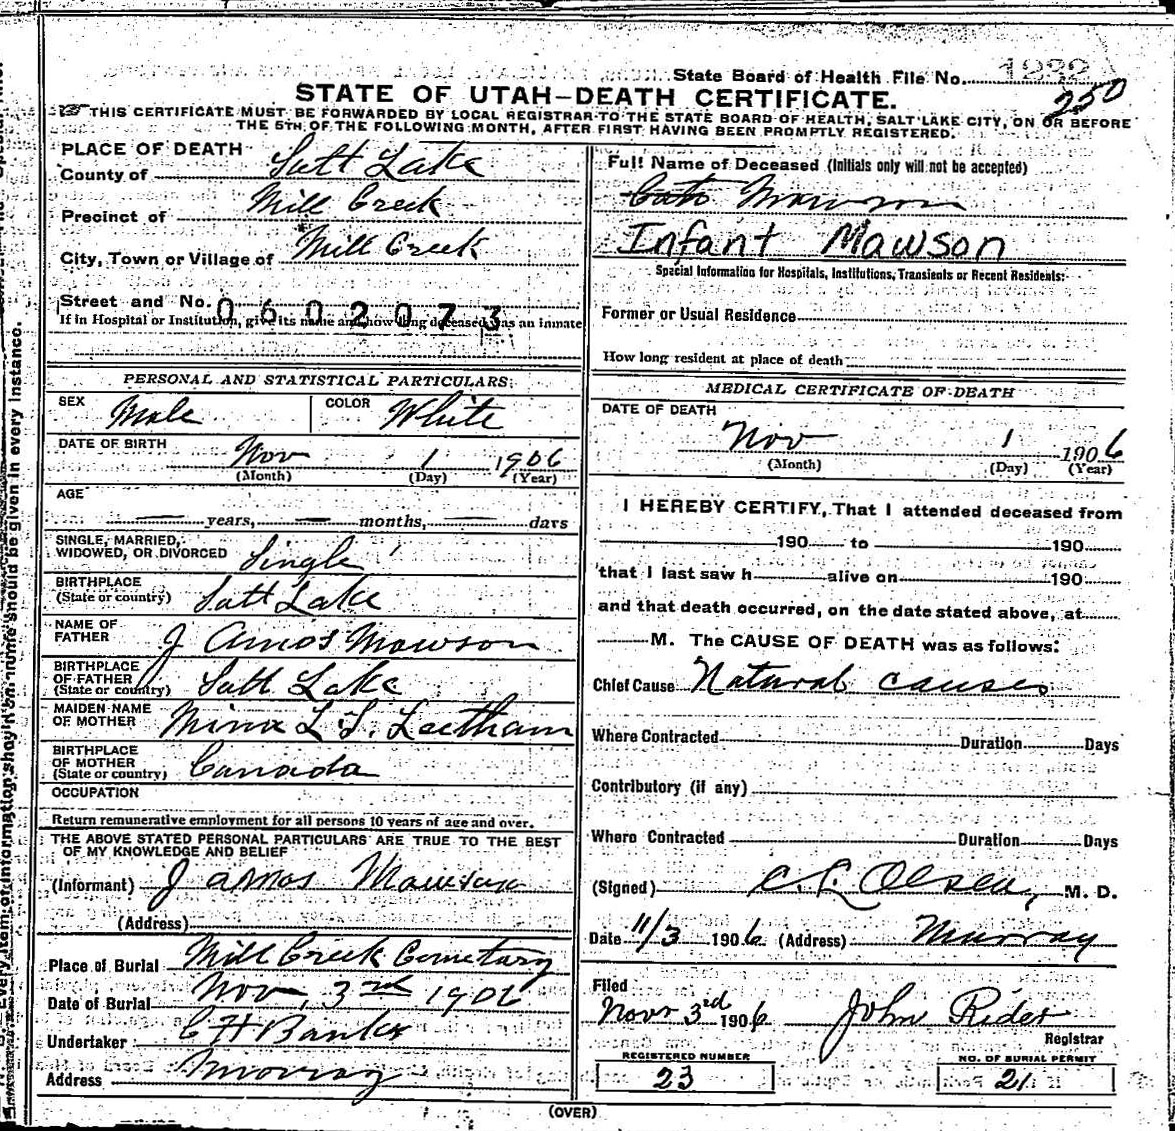 State Board of Health File No. 1232
250
STATE OF UTAH—DEATH CERTIFICATE.
THIS CERTIFICATE MUST BE FORWARDED BY LOCAL REGISTRAR TO THE STATE BOARD OF HEALTH, SALT LAKE CITY, ON OR BEFORE
THE 5TH OF THE FOLLOWING MONTH, AFTER FIRST HAVING BEEN PROMPTLY REGISTERED.
PLACE OF DEATH
County of Salt Lake
Precinct of Mill Creek
City, Town or Village of Mill Creek
Street and No. 0602073
If in Hospital or Institution, give its name and how long deceased was an inmate
PERSONAL AND STATISTICAL PARTICULARS.
SEX Male COLOR White
DATE OF BIRTH Nov 1 1906
(Month) (Day) (Year)
AGE
years, months, days
SINGLE, MARRIED,
WIDOWED, OR DIVORCED Single
BIRTHPLACE
(State or country) Salt Lake
NAME OF
FATHER J Amos Mawson
BIRTHPLACE
OF FATHER
(State or country) Salt Lake
MAIDEN NAME
OF MOTHER Mina L. S. Leetham
BIRTHPLACE
OF MOTHER
(State or country) Canada
OCCUPATION
Return remunerative employment for all persons 10 years of age and over.
THE ABOVE STATED PERSONAL PARTICULARS ARE TRUE TO THE BEST
OF MY KNOWLEDGE AND BELIEF
(Informant) J Amos Mawson
(Address)
Place of Burial Mill Creek Cemetary
Date of Burial Nov, 3rd 1906
Undertaker C H Banks
Address Murray
Full Name of Deceased (Initials only will not be accepted)
Mawson
Infant Mawson
Special Information for Hospitals, Institutions, Transients or Recent Residents:
Former or Usual Residence
How long resident at place of death
MEDICAL CERTIFICATE OF DEATH
DATE OF DEATH
Nov 1 1906
(Month) (Day) (Year)
I HEREBY CERTIFY, That I attended deceased from
190 to 190
that I last saw h alive on 190
and that death occurred, on the date stated above, at
M. The CAUSE OF DEATH was as follows:
Chief Cause Natural causes
Where Contracted Duration Days
Contributory (if any)
Where Contracted Duration Days
(Signed) C. L. Olsen, M. D.
Date 11/3 1906 (Address) Murray
Filed
Nov 3rd 1906 John Rider
Registrar
REGISTERED NUMBER NO. OF BURIAL PERMIT
23 21
(OVER)
Every item of information should be given in every instance.